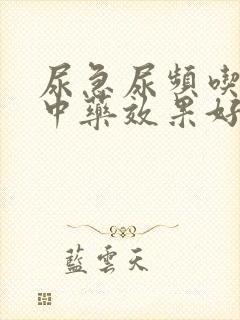 尿急尿頻喫
中藥效果好
藍雲天